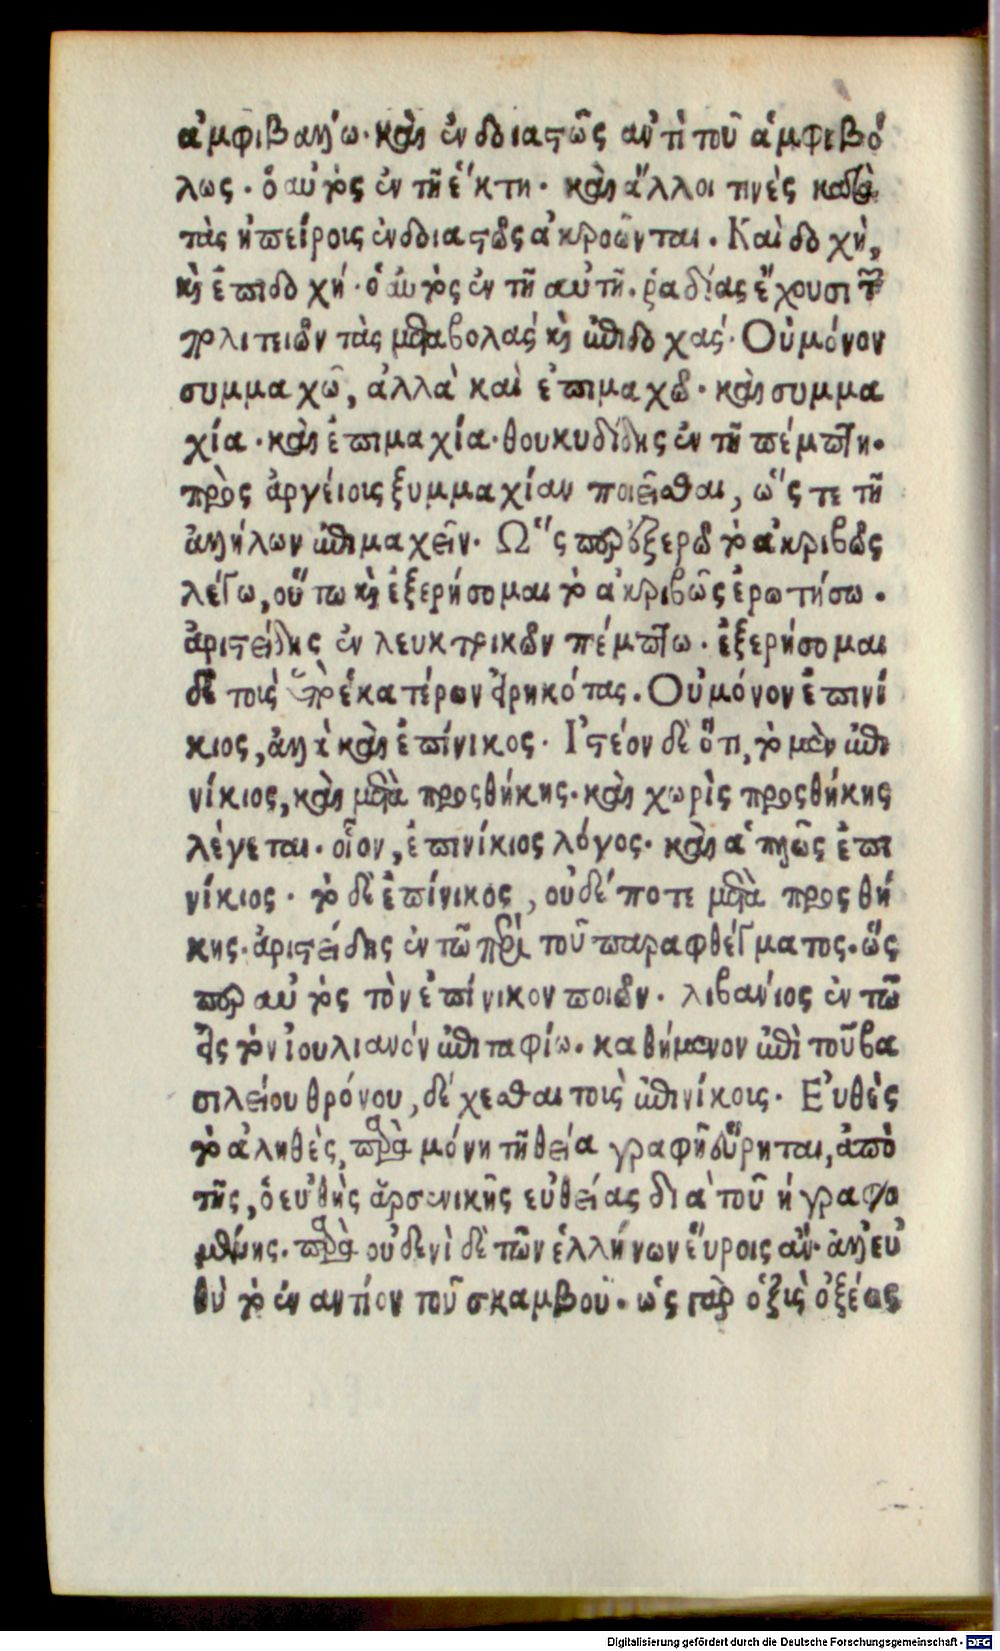 ἀμφιβάλλω. καὶ ἐνδοιαστῶς ἀντὶ τοῦ ἀμφιβό
λως. ὁ αὐτὸς ἐν τῇ ἕκτῃ. καὶ ἄλλοι τινὲς κατὰ
τὰς ἠπείροις ἐνδοιαστῶς ἀκροῶνται. Καὶ δοχὴ,
καὶ ἐπιδοχή. ὁ αὐτὸς ἐν τῇ αὐτῇ. ῥαδίας ἔχουσι τῶν
πολιτειῶν τὰς μεταβολάς καὶ ἐπιδοχάς. Οὐ μόνον
συμμαχῶ, ἀλλὰ καὶ ἐπιμαχῶ. καὶ συμμα
χία. καὶ ἐπιμαχία. θουκυδίδης ἐν τῇ πέμπτῃ.
πρὸς ἀργείοις ξυμμαχίαν ποιεῖσθαι, ὥστε τῇ
ἀλλήλων ἐπιμαχεῖν. Ὥσπερ ἐξερῶ τὸ ἀκριβῶς
λέγω, οὕτω καὶ ἐξερήσομαι τὸ ἀκριβῶς ἐρωτήσω.
ἀριστείδης ἐν λευκτρικῶν πέμπτω. ἐξερήσομαι
δὲ τοὺς ὑπὲρ ἑκατέρων εἰρηκότας. Οὐ μόνον ἐπινί
κιος, ἀλλὰ καὶ ἐπίνικος. Ἰστέον δὲ ὅτι, τὸ μὲν ἐπι
νίκιος, καὶ μετὰ προσθήκης. καὶ χωρὶς προσθήκης
λέγεται. οἷον, ἐπινίκιος λόγος. καὶ ἁπλῶς ἐπι
νίκιος. τὸ δὲ ἐπίνικος, οὐδέποτε μετὰ προσθή
κης. ἀριστείδης ἐν τῶ περὶ τοῦ παραφθέγματος. ὥς
περ αὐτὸς τὸν ἐπίνικον ποιῶν. λιβανίος ἐν τῶ
εἰς τὸν ἰουλιανὸν ἐπιταφίω. καθήμενον ἐπὶ τοῦ βα
σιλείου θρόνου, δέχεσθαι τοὺς ἐπινίκοις. Εὐθὲς
τὸ ἀληθὲς, παρὰ μόνῃ τῇ θεία γραφῇ εὕρηται, ἀπὸ
τῆς, ὁ εὐθὴς ἀρσενικῆς εὐθείας διὰ τοῦ η γραφο
μένης. παρὰ οὐδενὶ δὲ τῶν ἑλλήνων εὕροις ἄν. ἀλλ' εὐ
θὺ τὸ ἐναντίον τοῦ σκαμβοῦ. ὡς γὰρ ὀξὺς ὀξέος
Digitalisierung gefördert durch die Deutsche Forschungsgemeinschaft - DFG